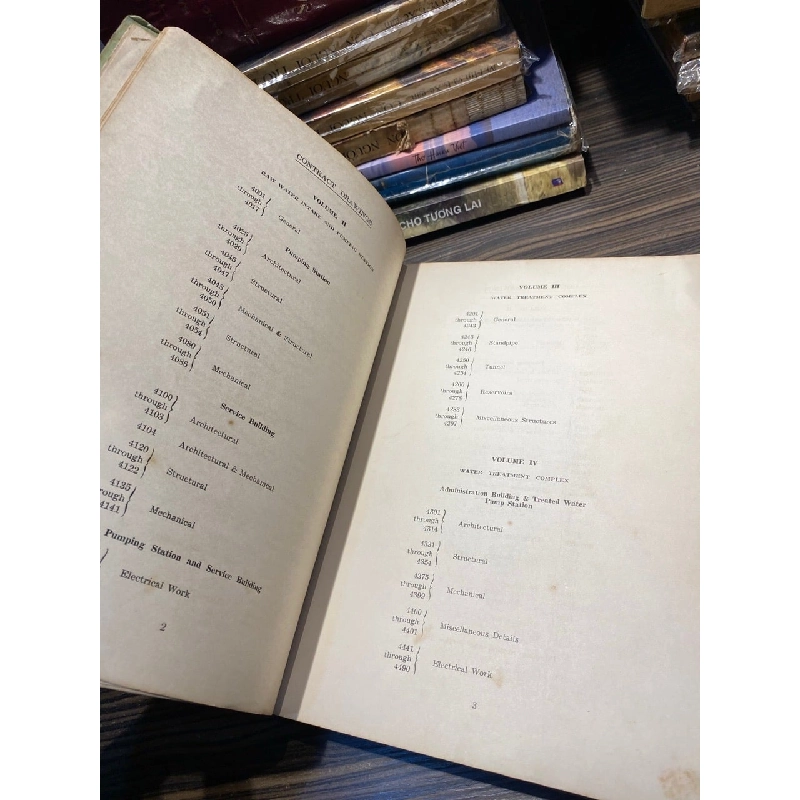 CONTRACT DRAWINGS
VOLUME II
RAW WATER INTAKE AND PUMPING STATION
4001
through
4017
General
Pumping Station
4025
through
4029
Architectural
through
4047
Structural
4048
through
4050
Mechanical & Structural
4051
through
4054
Structural
4080
through
4086
Mechanical
Service Building
4100
through
4103
Architectural
4104
Architectural & Mechanical
4120
through
4122
Structural
4125
through
4141
Mechanical
Pumping Station and Service Building
Electrical Work
2
VOLUME III
WATER TREATMENT COMPLEX
4201
through
General
through
Standpipe
through
Tunnel
through
Reservoirs
through
Miscellaneous Structures
VOLUME IV
WATER TREATMENT COMPLEX
Administration Building & Treated Water
Pump Station
4301
through
4314
Architectural
4331
through
4354
Structural
4375
through
4399
Mechanical
4400
through
4401
Miscellaneous Details
4441
through
4490
Electrical Work
3
The Human Web
CHO TƯƠNG LAI